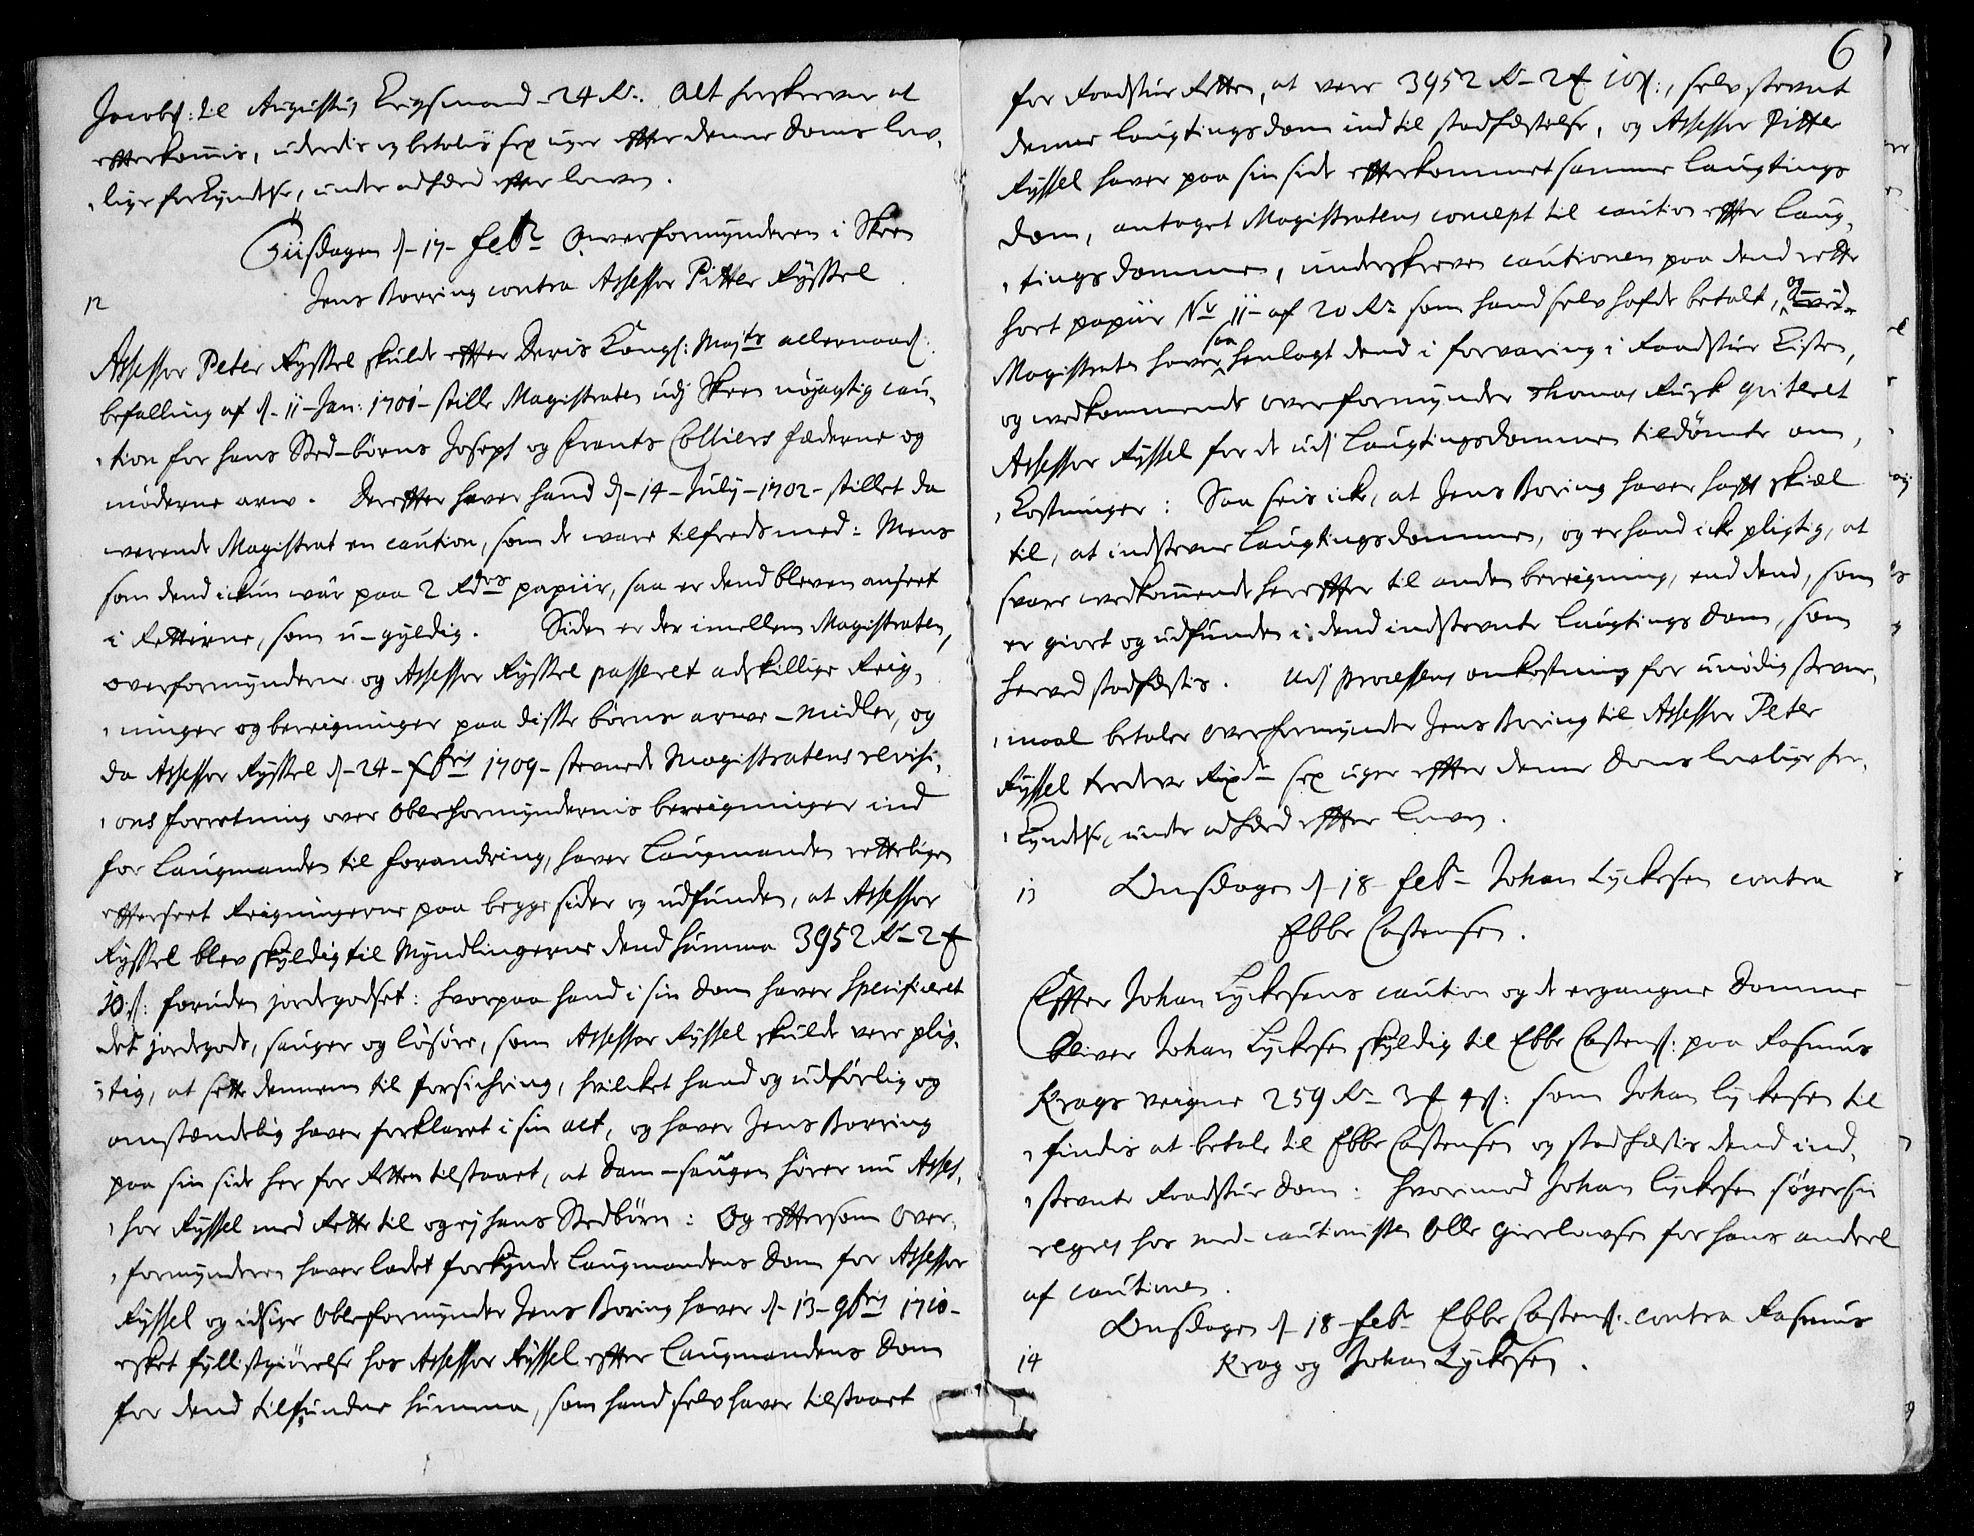 Jacobs: til Augustus Krigsmand 24 Rd. Alt forskrevne at
efterkommis, uderedis og betalis sex uger efter denne doms lov-
lige forkyndelse, under adfærd efter loven.
Tiisdagen d. 17 Febr. Overformynderen i Skeen
Jens Borring contra Assessor Pitter Ryssel
12
Assessor Peter Ryssel skulde efter Deris Kongl: Maj:ts allernaad:
befalling af d. 11 Jan: 1701 stille Magistraten udj Skeen nøjagtig cau-
tion for hans Sted-børns Joseph og Frants Colliers fæderne og
møderne arw. Derefter haver hand d. 14 July 1702 stillet da
werende Magistrat en caution, som de ware tilfreds med: Mens
som dend ickun war paa 2 Rdrs papiir, saa er dend bleven anseet
i Retterne, som u-gyldig. Siden er der imellem Magistraten,
overformynderne og Assessor Ryssel passeret adskillige Reig-
ninger og bereigninger paa disse børns arve-midler, og
da Assessor Ryssel d. 24 Xbris 1709 stevnede Magistratens revisi-
ons forretning over Oberformyndernis bereigninger ind
for Laugmanden til forandring, haver Laugmanden rettelligen
efterseet Reigningerne paa begge sider og udfunden, at Assessor
Ryssel blev skyldig til Myndlingerne dend summa 3952 Rd 2 ort
10 s: foruden jordegodset: hvorpaa hand i sin dom haver specificeret
det jordegods, sauger og løsøre, som Assessor Ryssel skulde vere plig-
tig, at sette dennem til forsichring, hvilcket hand og udførlig og
omstændelig haver forklaret i sin act, og haver Jens Borring
paa sin side her for Retten tilstaaet, at dom-saugen hører nu Asses-
sor Ryssel med Rette til og ej hans Stedbørn: Og eftersom Over-
formynderen haver ladet forkynde Laugmandens dom for Assessor
Ryssel og idsige Oberformynder Jens Boring haver d. 13 9bris 1710
esket fyllistgiørelse hos Assessor Ryssel efter Laugmandens dom
for dend tilfundne summa, som hand selv haver tilstaaet
6
for Raadstue Retten, at vere 3952 Rd 2 ort 10 s:, selv stevnt
denne laugtingsdom ind til stadfæstelse, og Assessor Pitter
Ryssel haver paa sin side efterkommet samme laugtings
dom, antaget Magistratens concept til caution efter laug-
tingsdommen, underskreven cautionen paa dend rette
sort papiir No 11 af 20 Rd som hand selv hafde betalt, og
Magistraten haver saa henlagt dend i forvaring i Raadstue Kisten,
og wedkommende overformynder Thomas Rusk qviteret
Assessor Ryssel for de udj Laugtingsdommen tildømte om-
kostninger: Saa seis icke, at Jens Boring haver haft skiæl
til, at indstevne Laugtingsdommen, og er hand icke pligtig, at
svare wedkommende herefter til anden bereigning, end dend, som
er giort og udfunden i dend indstevnte laugtings dom, som
herved stadfæstis. Udj processens omkostning for unødig stevne-
maal betaler overformynder Jens Boring til Assessor Peter
Ryssel tredeve Rixdr sex uger efter denne doms lovlige for-
kyndelse, under adfærd efter loven.
13 Onsdagen d. 18 Febr. Johan Lyckesen contra
Ebbe Castensen.
Efter Johan Lyckesens caution og de ergangne domme
bliver Johan Lyckesen skyldig til Ebbe Castens: paa Rasmus
Krags veigne 259 Rd 3 ort 4 s: som Johan Lyckesen til-
findis at betale til Ebbe Castensen og stadfæstis dend ind-
stevnte Raadstue dom: hvorimod Johan Lyckesen søger sin
regres hos med-cautionisten Olle Gierlowsen for hans andeel
af cautionen.
Onsdagen d. 18 Febr Ebbe Castens: contra Rasmus
14 Krag og Johan Lyckesen.